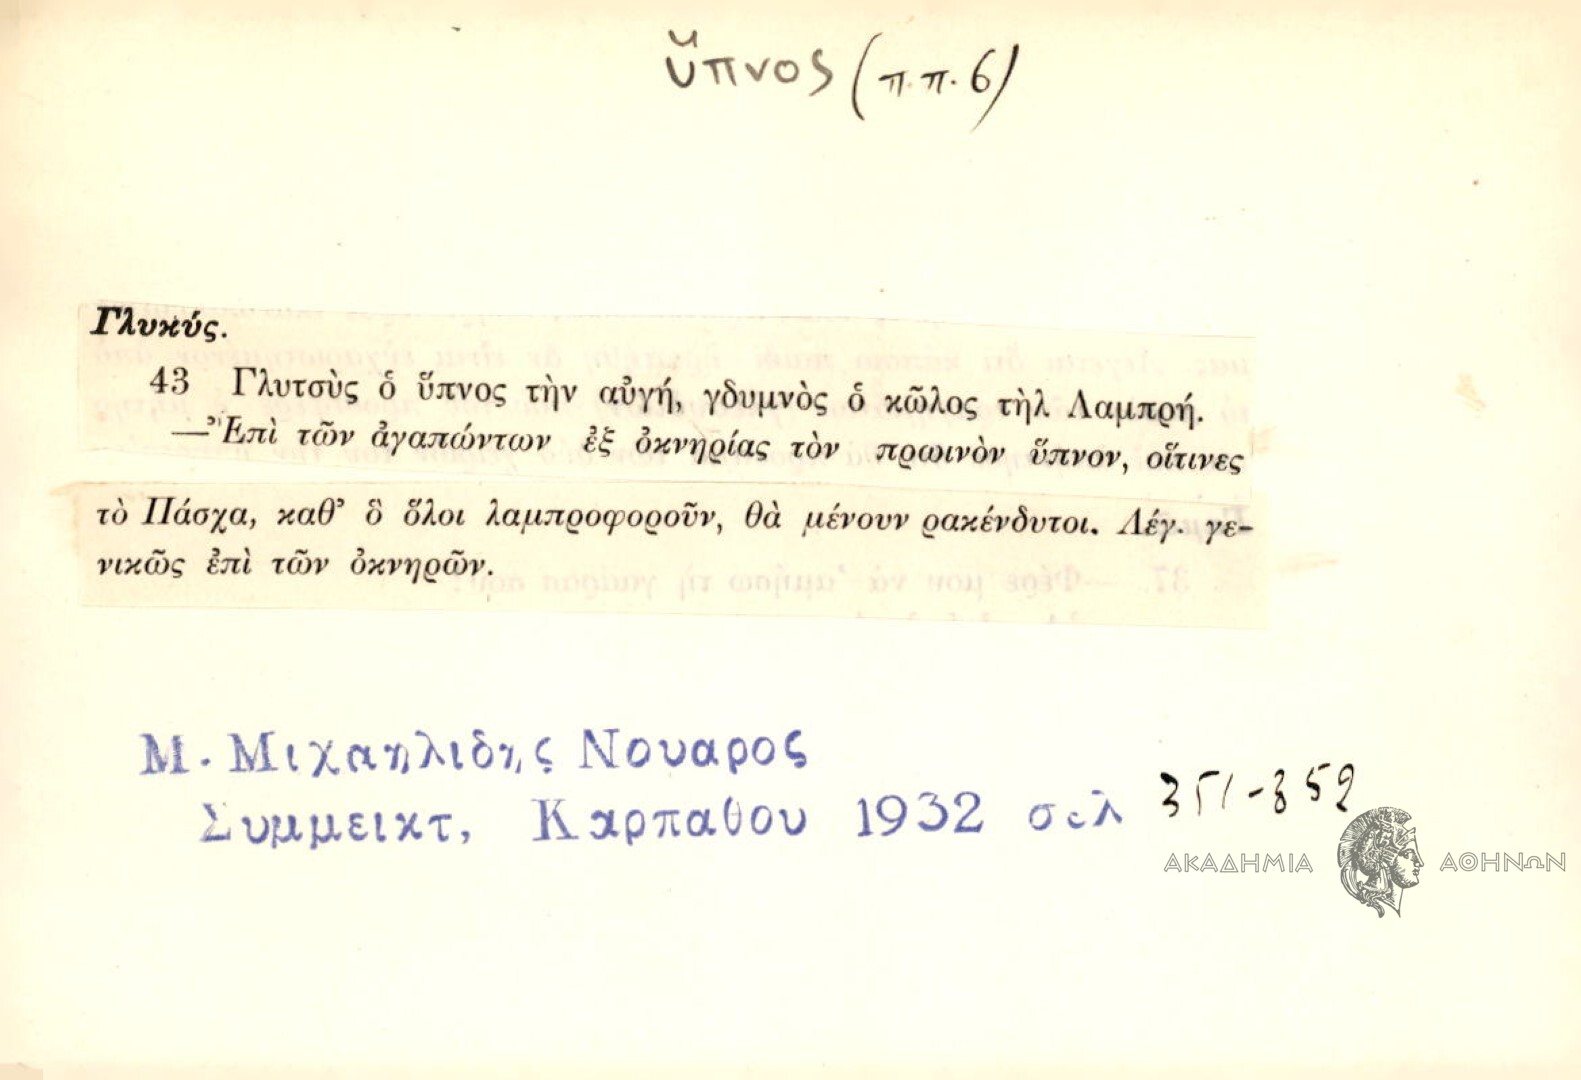 ὕπνος (π.π. 6)
Γλυκύς.
43 Γλυτσὺς ὁ ὕπνος τὴν αὐγή, γδυμνὸς ὁ κῶλος τὴλ Λαμπρή.
—Ἐπὶ τῶν ἀγαπώντων ἐξ ὀκνηρίας τὸν πρωινὸν ὕπνον, οἵτινες
τὸ Πάσχα, καθ’ ὃ ὅλοι λαμπροφοροῦν, θὰ μένουν ρακένδυτοι. Λέγ. γε-
νικῶς ἐπὶ τῶν ὀκνηρῶν.
Μ. Μιχαηλιδης Νουαρος
Συμμεικτ, Καρπαθου 1932 σελ 351-352
ΑΚΑΔΗΜΙΑ ΑΘΗΝΩΝ